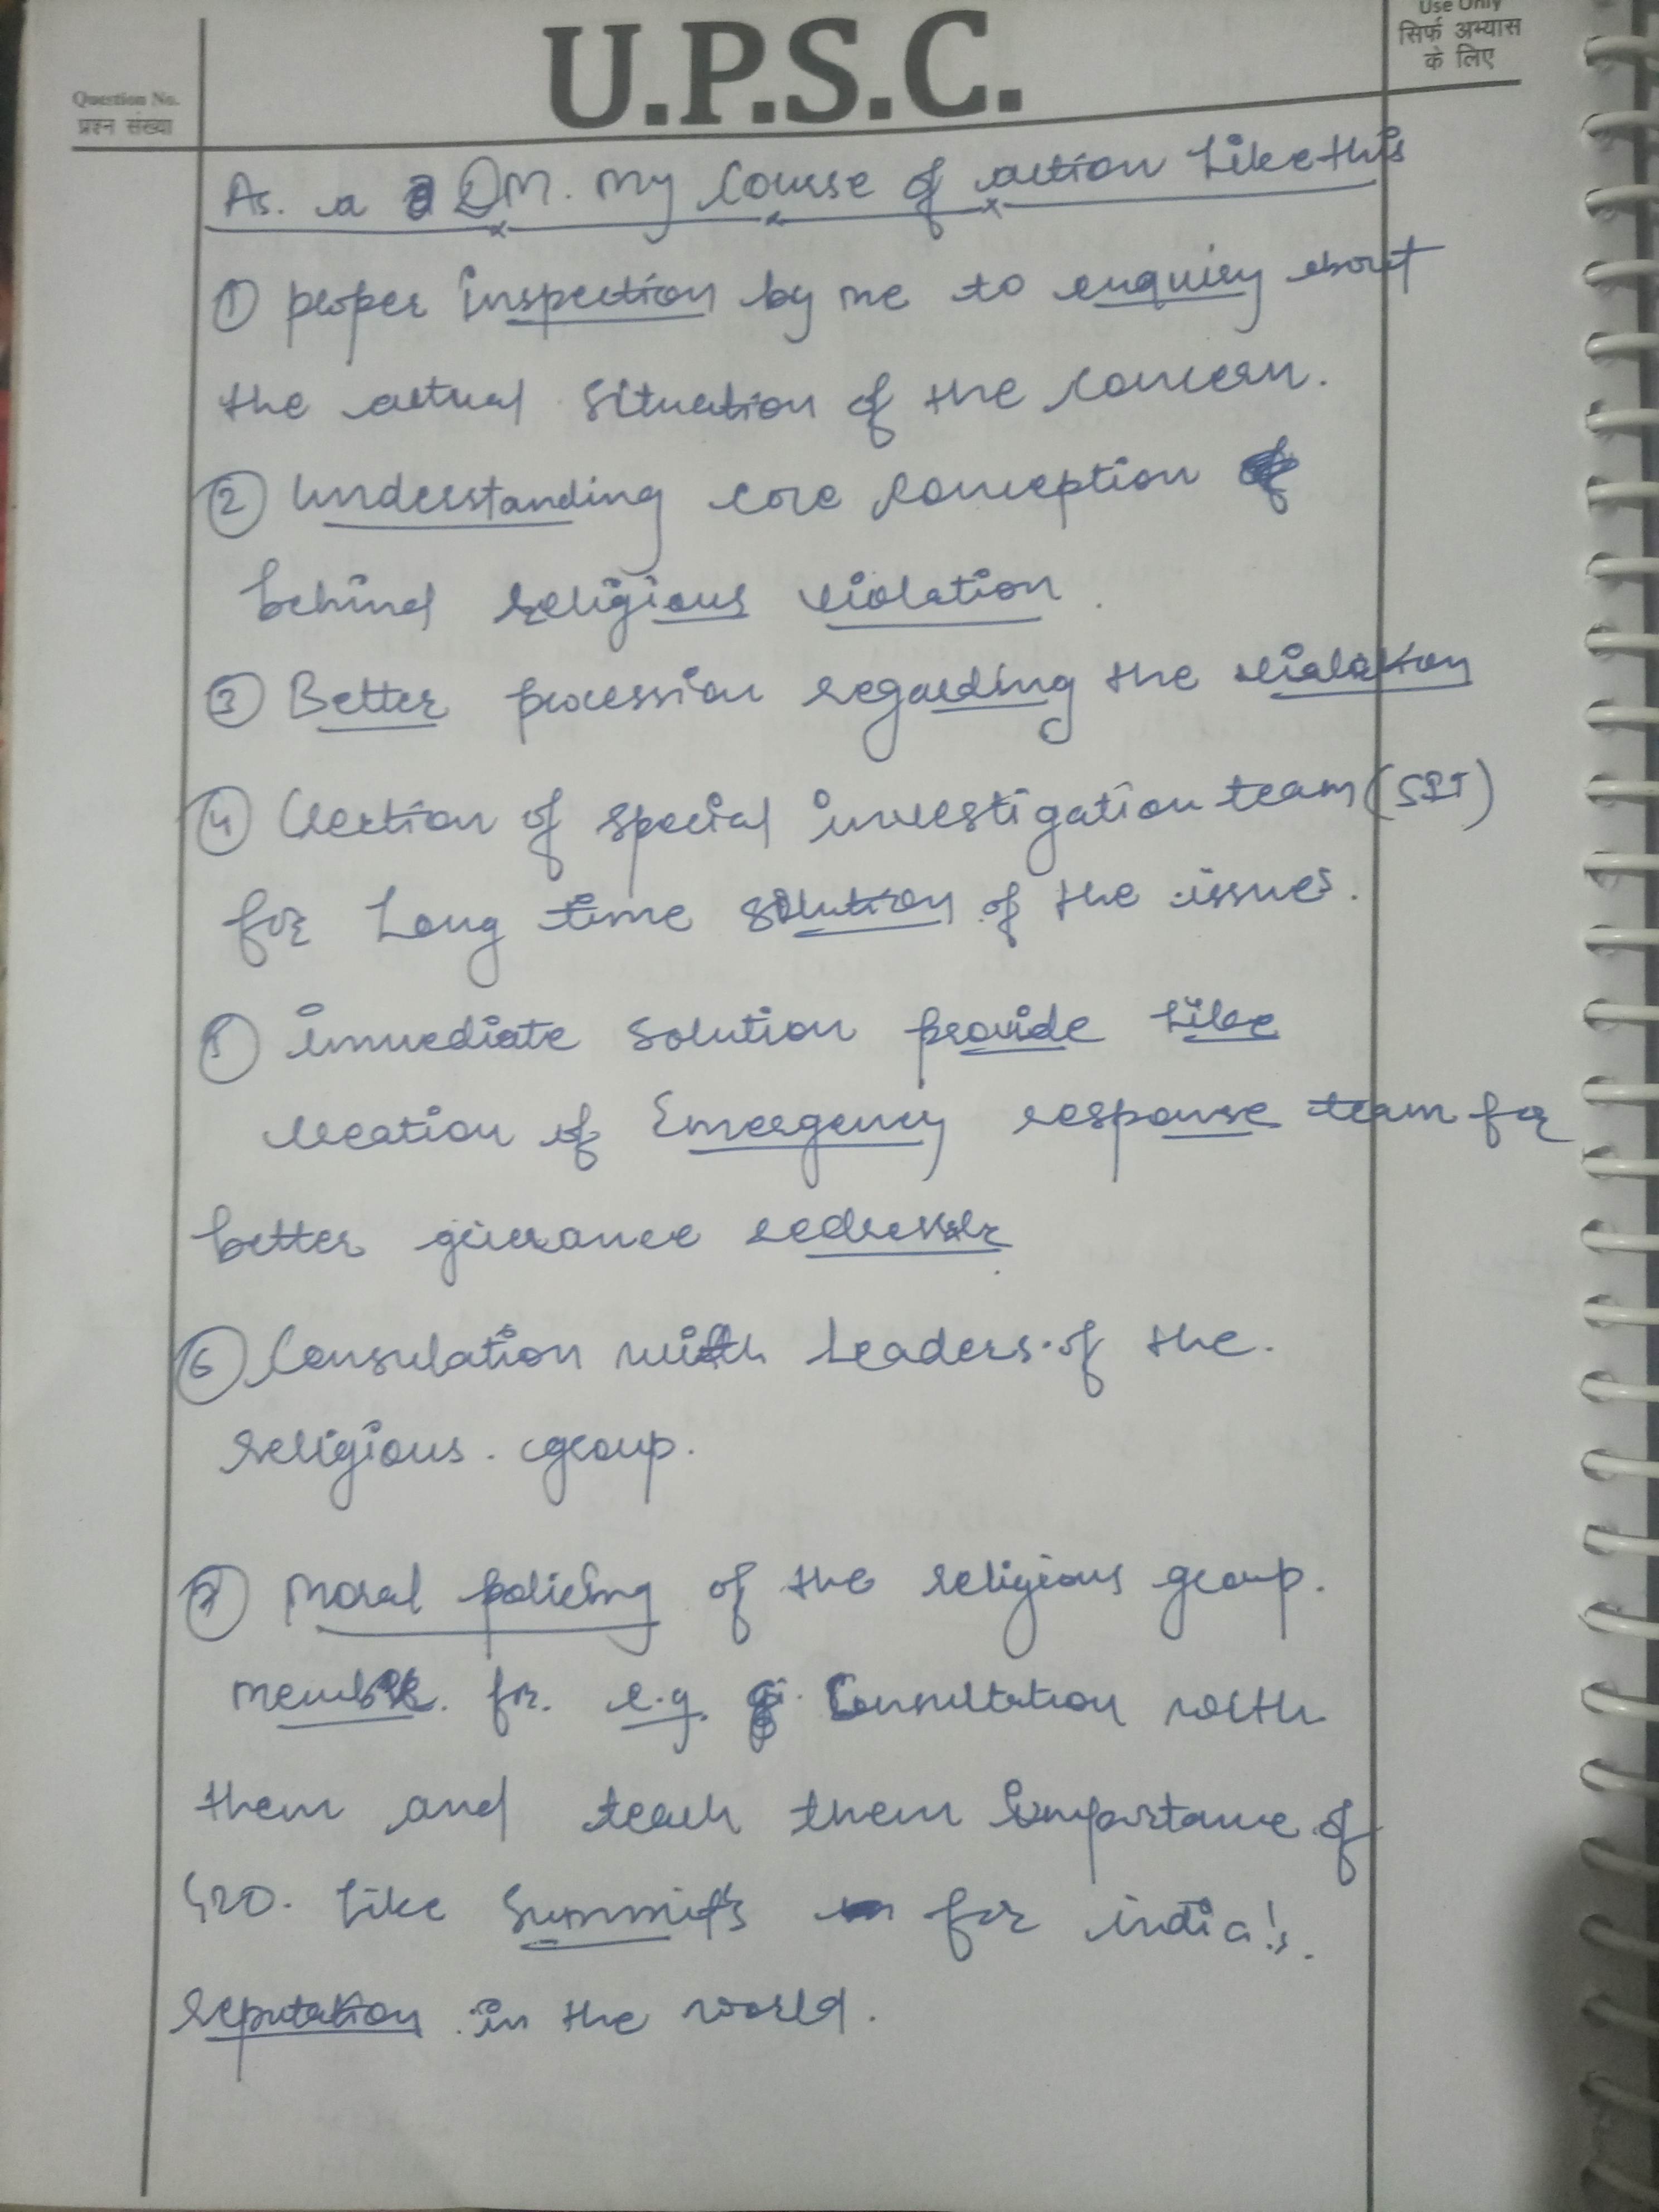 Use Only
सिर्फ अभ्यास
के लिए
U.P.S.C.
Question No.
प्रश्न संख्या
As. a DM. my Course of action Like this
① proper inspection by me to enquiry about
the actual situation of the concern.
② Understanding core conception
behind religious violation.
③ Better procession regarding the violation
④ Creation of special investigation team (SIT)
for Long time solution of the issues.
⑤ immediate solution provide like
creation of Emergency response team for
better grievance
⑥ Consulation with Leaders of the.
religious group.
⑦ Moral policing of the religious group.
member. for. e.g. Consultation with
them and teach them importance of
G20. Like Summit's for india's.
reputation in the world.